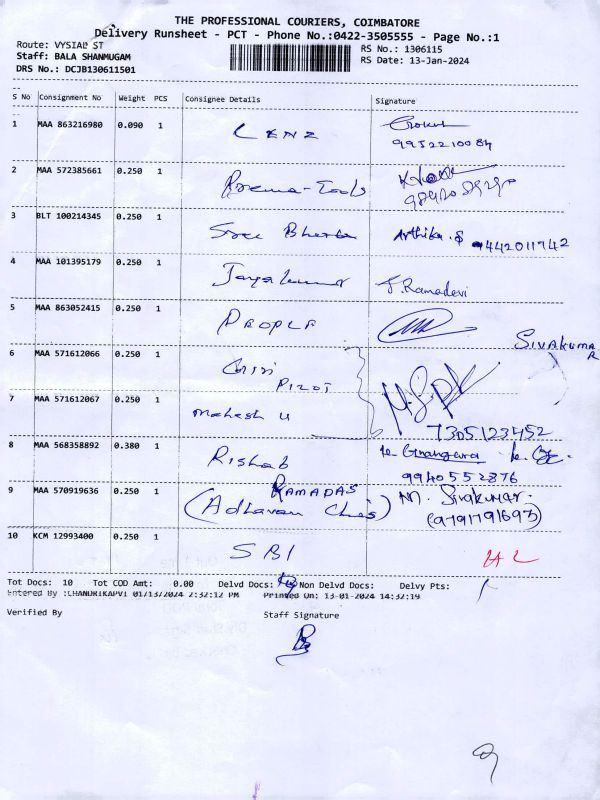 THE PROFESSIONAL COURIERS, COIMBATORE
Delivery Runsheet - PCT - Phone No.:0422-3505555 - Page No.:1
Route: VYSIAL ST
RS No.: 1306115
Staff: BALA SHANMUGAM
RS Date: 13-Jan-2024
DRS No.: DCJB130611501
S No Consignment No Weight PCS Consignee Details Signature
1 MAA 863216980 0.090 1 LENZ Gokul
9952210084
2 MAA 572385661 0.250 1 Prema-Tools
3 BLT 100214345 0.250 1 Sree Bharta Arthika.S 9442011742
4 MAA 101395179 0.250 1 Jayakumar J.Ramadevi
5 MAA 863052415 0.250 1 PEOPLE
SIVAKUMAR
6 MAA 571612066 0.250 1 Giri
PILOT
7 MAA 571612067 0.250 1 Mahesh U
7305123452
8 MAA 568358892 0.380 1 Rishab
9940552876
9 MAA 570919636 0.250 1 RAMADAS M. Sivakumar.
(Adhavan Chis) (9791791697)
10 KCM 12993400 0.250 1 SBI
Tot Docs: 10 Tot COD Amt: 0.00 Delvd Docs: Non Delvd Docs: Delvy Pts:
Entered By :CHANDRIKAPVT 01/13/2024 2:32:12 PM Printed On: 13-01-2024 14:32:19
Verified By Staff Signature